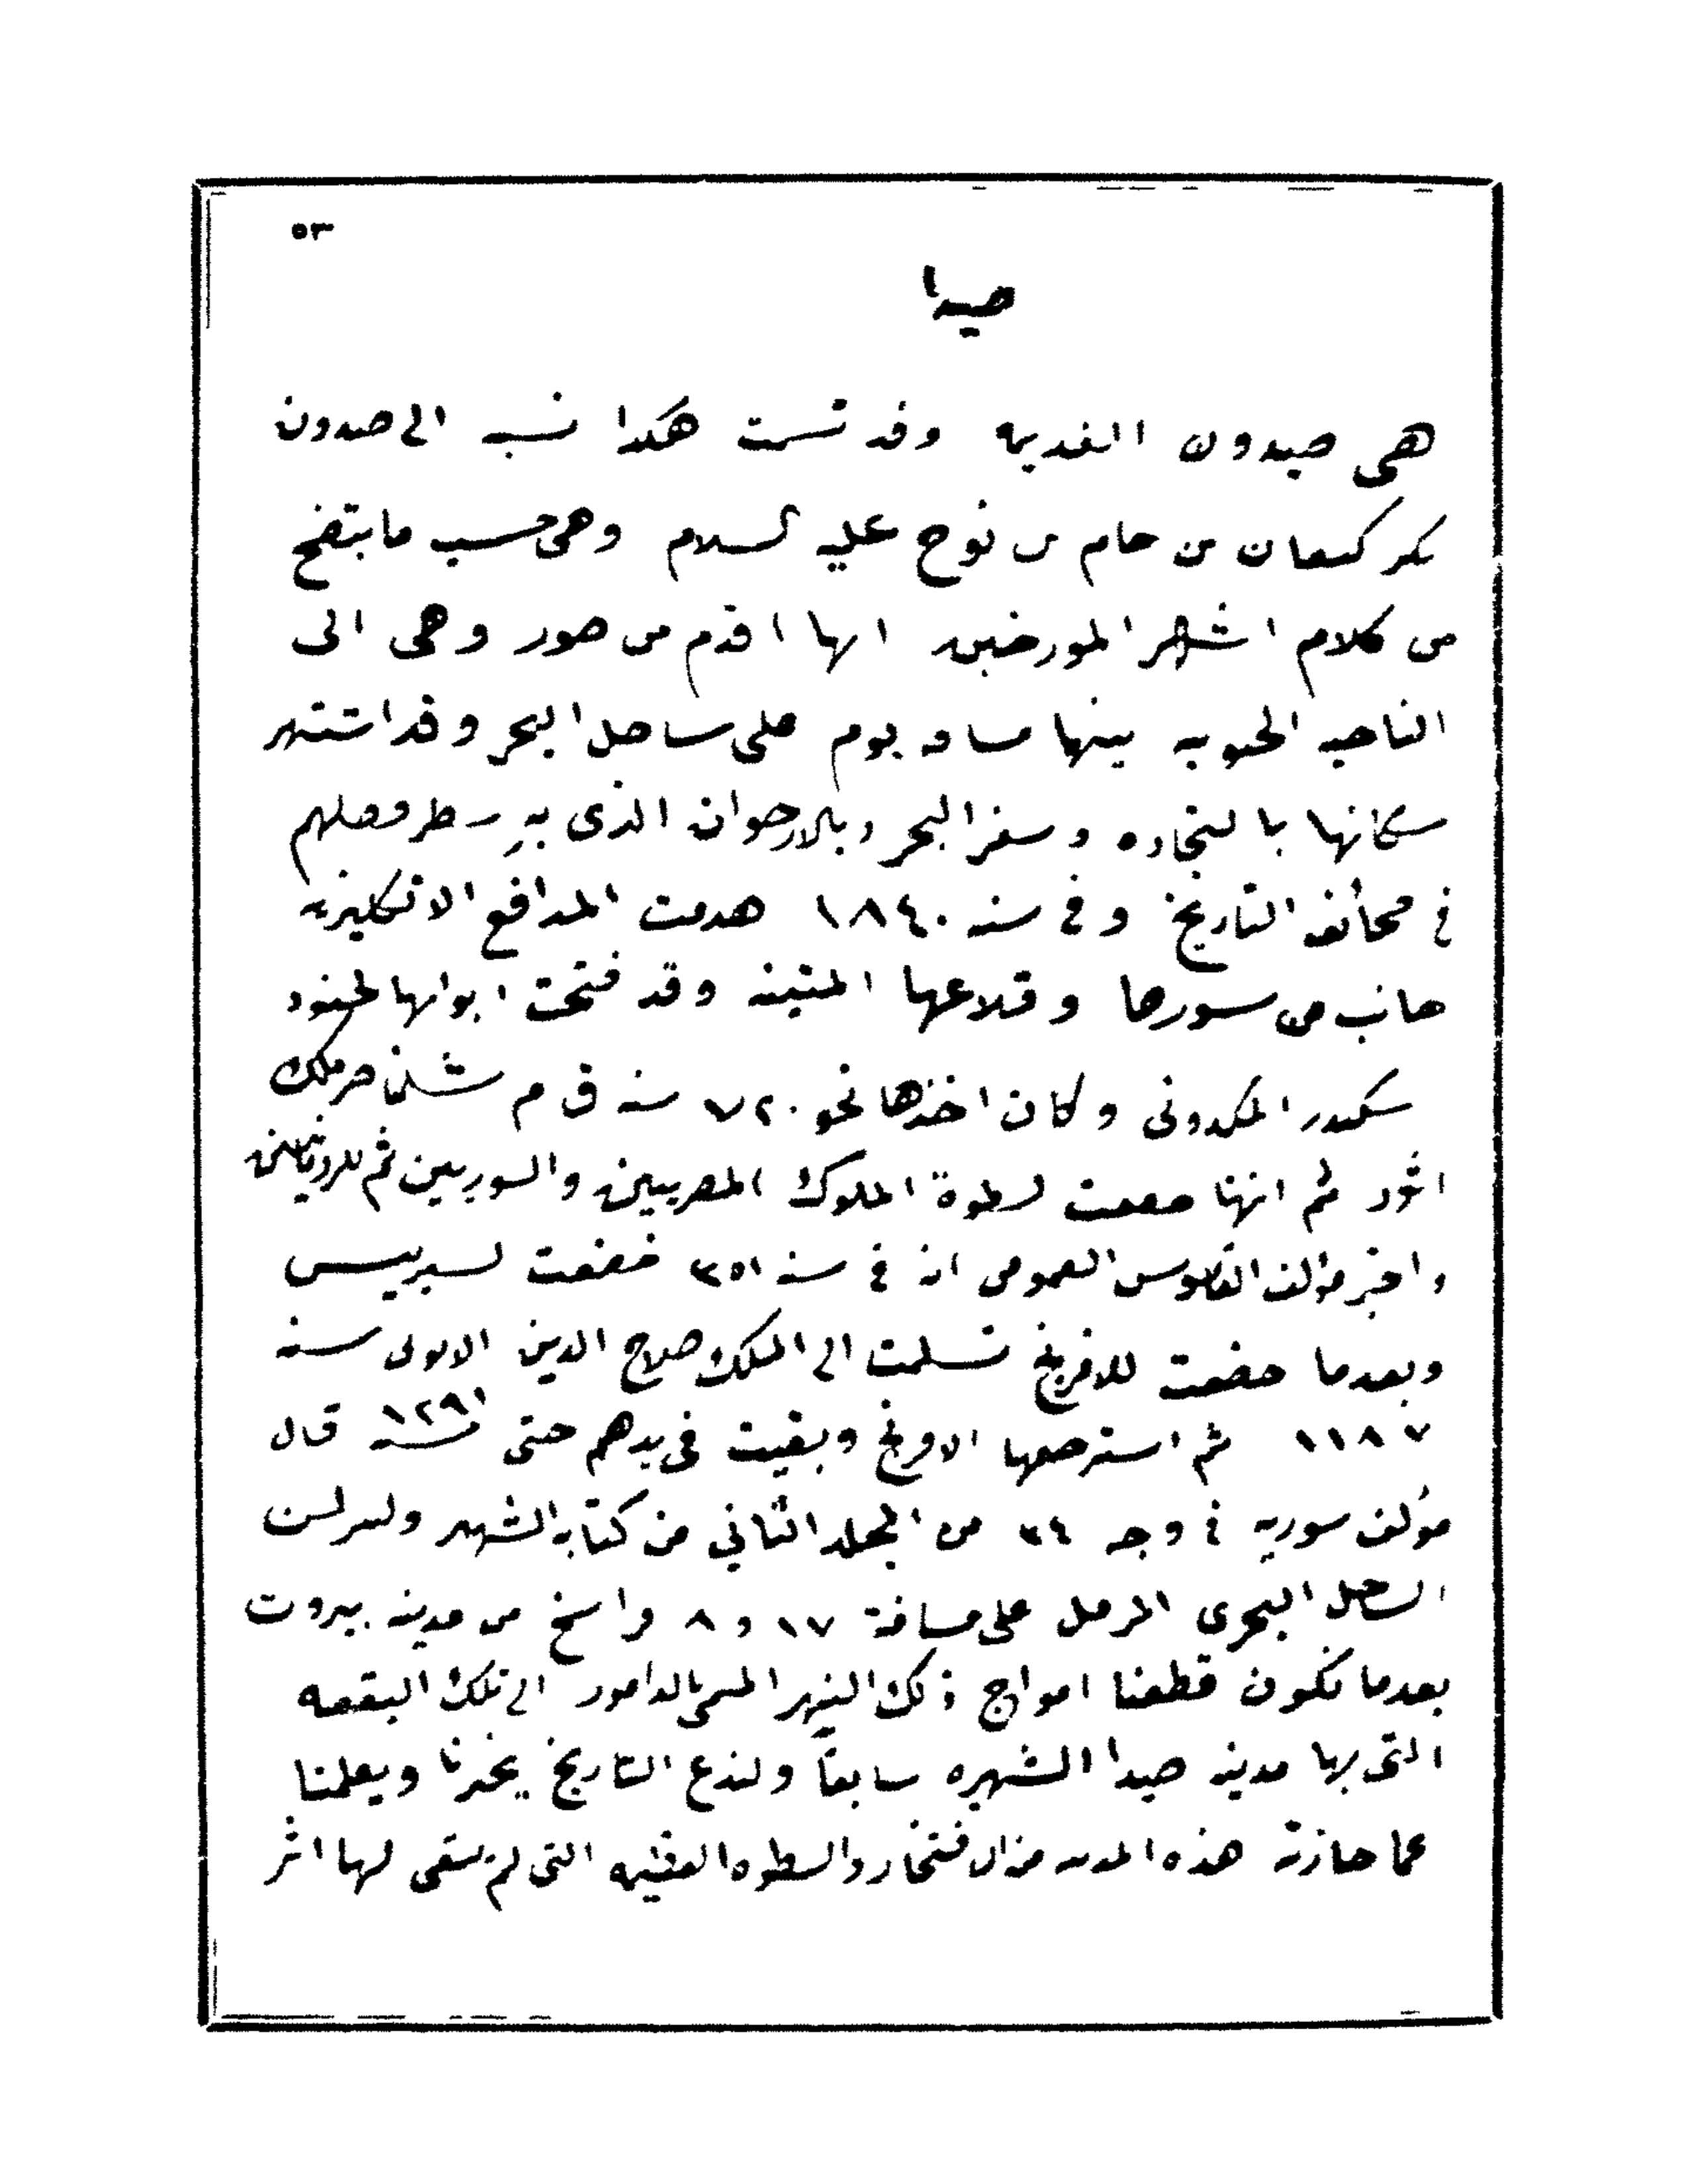 ٥٣
صيدا
هى صيدون القديمه وقد تسمت هكذا نسبه الى صيدون
بكر كنعان بن حام بن نوح عليه السلام وهى حسب ما يتضح
من كلام اشهر المورخين انها اقدم من صور وهى الى
الناحيه الجنوبيه بينها مسافه يوم على ساحل البحر وقد اشتهر
سكانها بالتجاره وسفر البحر وبالارجوان الذى به سطر فضلهم
فى صحائف التاريخ وفى سنه ١٨٤٠ هدمت المدافع الانكليزيه
جانب من سورها وقلاعها المتينه وقد فتحت ابوابها لجنود
سكندر المكدونى وكان اخذها نحو ٧٢٠ سنه ق م ملك
اثور ثم انها خضعت لسطوة الملوك المصريين والسوريين ثم للرومانيين
واخبر مؤلف القاموس العمومى انه فى سنه ٣٥١ خضعت لسيريس
وبعدما خضعت للافرنج تسلمت الى الملك صلاح الدين الايوبى سنه
١١٨٧ ثم استرجعها الافرنج وبقيت فى يدهم حتى سنه ١٢٩١ قال
مؤلف سوريه فى وجه ٣٤ من المجلد الثاني من كتابه الشهير
الساحل البحرى المرمل على مسافة ١٧ و ٨ فراسخ من مدينه بيروت
بعدما نكون قطعنا امواج ذلك النهر المسمى بالدامور الى تلك البقعه
التى بها مدينه صيدا الشهيره سابقاً ولندع التاريخ يخبرنا ويعلمنا
عما حازته هذه المدينه من الافتخار والسطوه العظيمه التى لم يبقى لها اثر